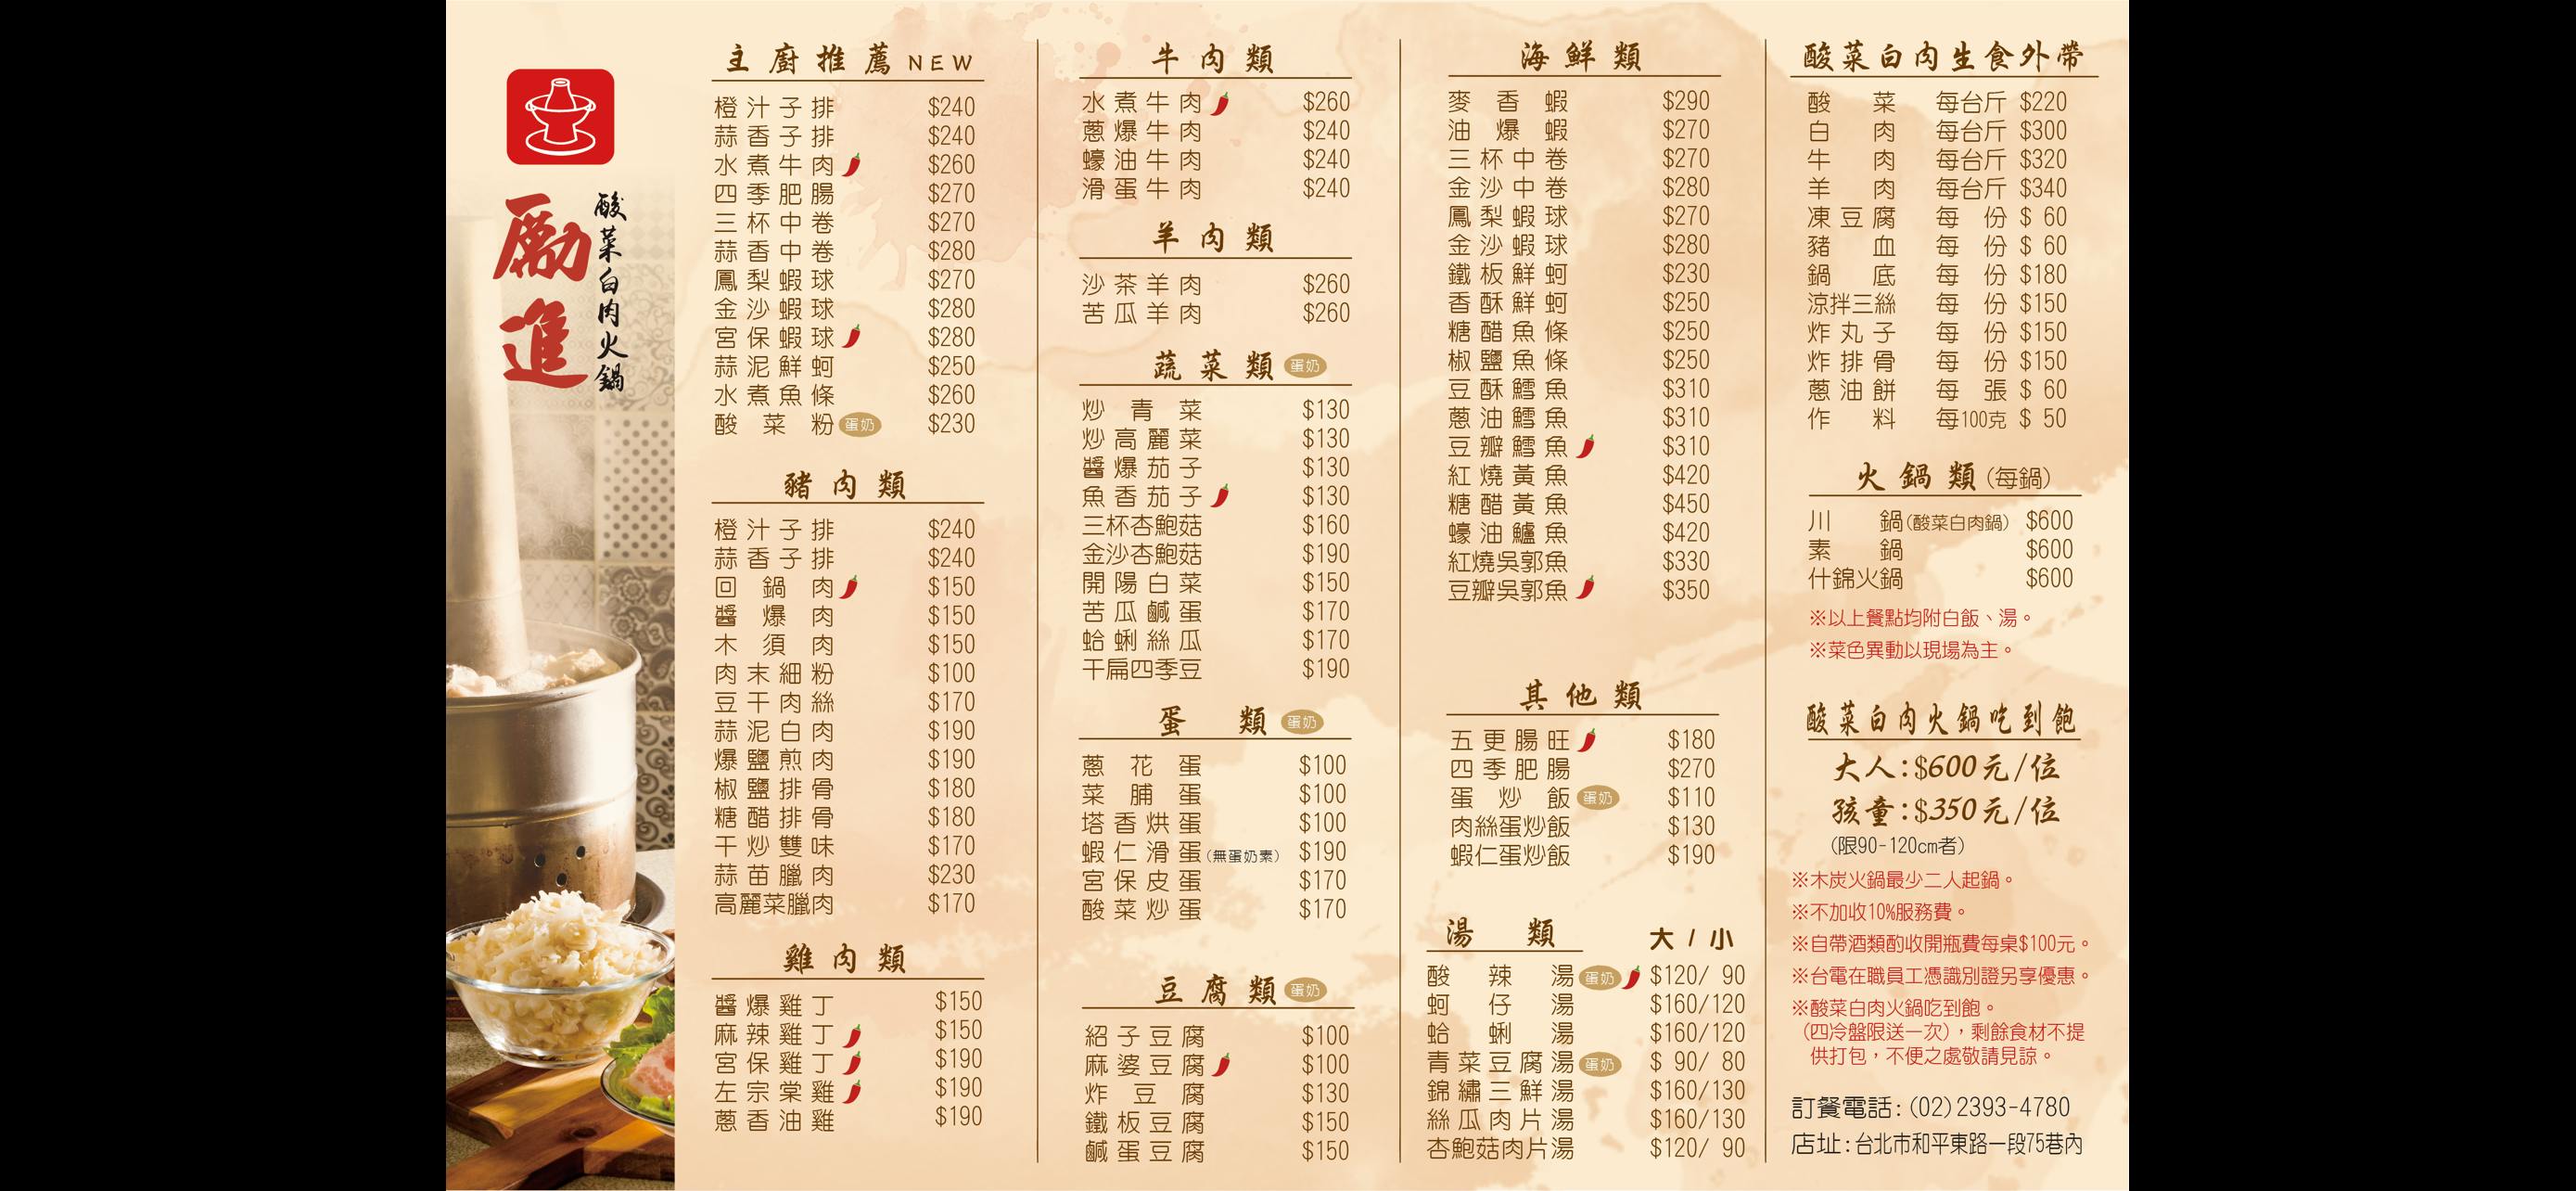 勵進
酸菜白肉火鍋
主廚推薦 NEW
橙汁子排 $240
蒜香子排 $240
水煮牛肉 $260
四季肥腸 $270
三杯中卷 $270
蒜香中卷 $280
鳳梨蝦球 $270
金沙蝦球 $280
宮保蝦球 $280
蒜泥鮮蚵 $250
水煮魚條 $260
酸菜粉 蛋奶 $230
豬肉類
橙汁子排 $240
蒜香子排 $240
回鍋肉 $150
醬爆肉 $150
木須肉 $150
肉末細粉 $100
豆干肉絲 $170
蒜泥白肉 $190
爆鹽煎肉 $190
椒鹽排骨 $180
糖醋排骨 $180
干炒雙味 $170
蒜苗臘肉 $230
高麗菜臘肉 $170
雞肉類
醬爆雞丁 $150
麻辣雞丁 $150
宮保雞丁 $190
左宗棠雞 $190
蔥香油雞 $190
牛肉類
水煮牛肉 $260
蔥爆牛肉 $240
蠔油牛肉 $240
滑蛋牛肉 $240
羊肉類
沙茶羊肉 $260
苦瓜羊肉 $260
蔬菜類 蛋奶
炒青菜 $130
炒高麗菜 $130
醬爆茄子 $130
魚香茄子 $130
三杯杏鮑菇 $160
金沙杏鮑菇 $190
開陽白菜 $150
苦瓜鹹蛋 $170
蛤蜊絲瓜 $170
干扁四季豆 $190
蛋類 蛋奶
蔥花蛋 $100
菜脯蛋 $100
塔香烘蛋 $100
蝦仁滑蛋(無蛋奶素) $190
宮保皮蛋 $170
酸菜炒蛋 $170
豆腐類 蛋奶
紹子豆腐 $100
麻婆豆腐 $100
炸豆腐 $130
鐵板豆腐 $150
鹹蛋豆腐 $150
海鮮類
麥香蝦 $290
油爆蝦 $270
三杯中卷 $270
金沙中卷 $280
鳳梨蝦球 $270
金沙蝦球 $280
鐵板鮮蚵 $230
香酥鮮蚵 $250
糖醋魚條 $250
椒鹽魚條 $250
豆酥鱈魚 $310
蔥油鱈魚 $310
豆瓣鱈魚 $310
紅燒黃魚 $420
糖醋黃魚 $450
蠔油鱸魚 $420
紅燒吳郭魚 $330
豆瓣吳郭魚 $350
其他類
五更腸旺 $180
四季肥腸 $270
蛋炒飯 蛋奶 $110
肉絲蛋炒飯 $130
蝦仁蛋炒飯 $190
湯類 大 / 小
酸辣湯 蛋奶 $120/ 90
蚵仔湯 $160/120
蛤蜊湯 $160/120
青菜豆腐湯 蛋奶 $ 90/ 80
錦繡三鮮湯 $160/130
絲瓜肉片湯 $160/130
杏鮑菇肉片湯 $120/ 90
酸菜白肉生食外帶
酸菜 每台斤 $220
白肉 每台斤 $300
牛肉 每台斤 $320
羊肉 每台斤 $340
凍豆腐 每份 $ 60
豬血 每份 $ 60
鍋底 每份 $180
涼拌三絲 每份 $150
炸丸子 每份 $150
炸排骨 每份 $150
蔥油餅 每張 $ 60
作料 每100克 $ 50
火鍋類(每鍋)
川鍋(酸菜白肉鍋) $600
素鍋 $600
什錦火鍋 $600
※以上餐點均附白飯、湯。
※菜色異動以現場為主。
酸菜白肉火鍋吃到飽
大人:$600元/位
孩童:$350元/位
(限90-120cm者)
※木炭火鍋最少二人起鍋。
※不加收10%服務費。
※自帶酒類酌收開瓶費每桌$100元。
※台電在職員工憑識別證另享優惠。
※酸菜白肉火鍋吃到飽。
(四冷盤限送一次)，剩餘食材不提
供打包，不便之處敬請見諒。
訂餐電話:(02)2393-4780
店址:台北市和平東路一段75巷內